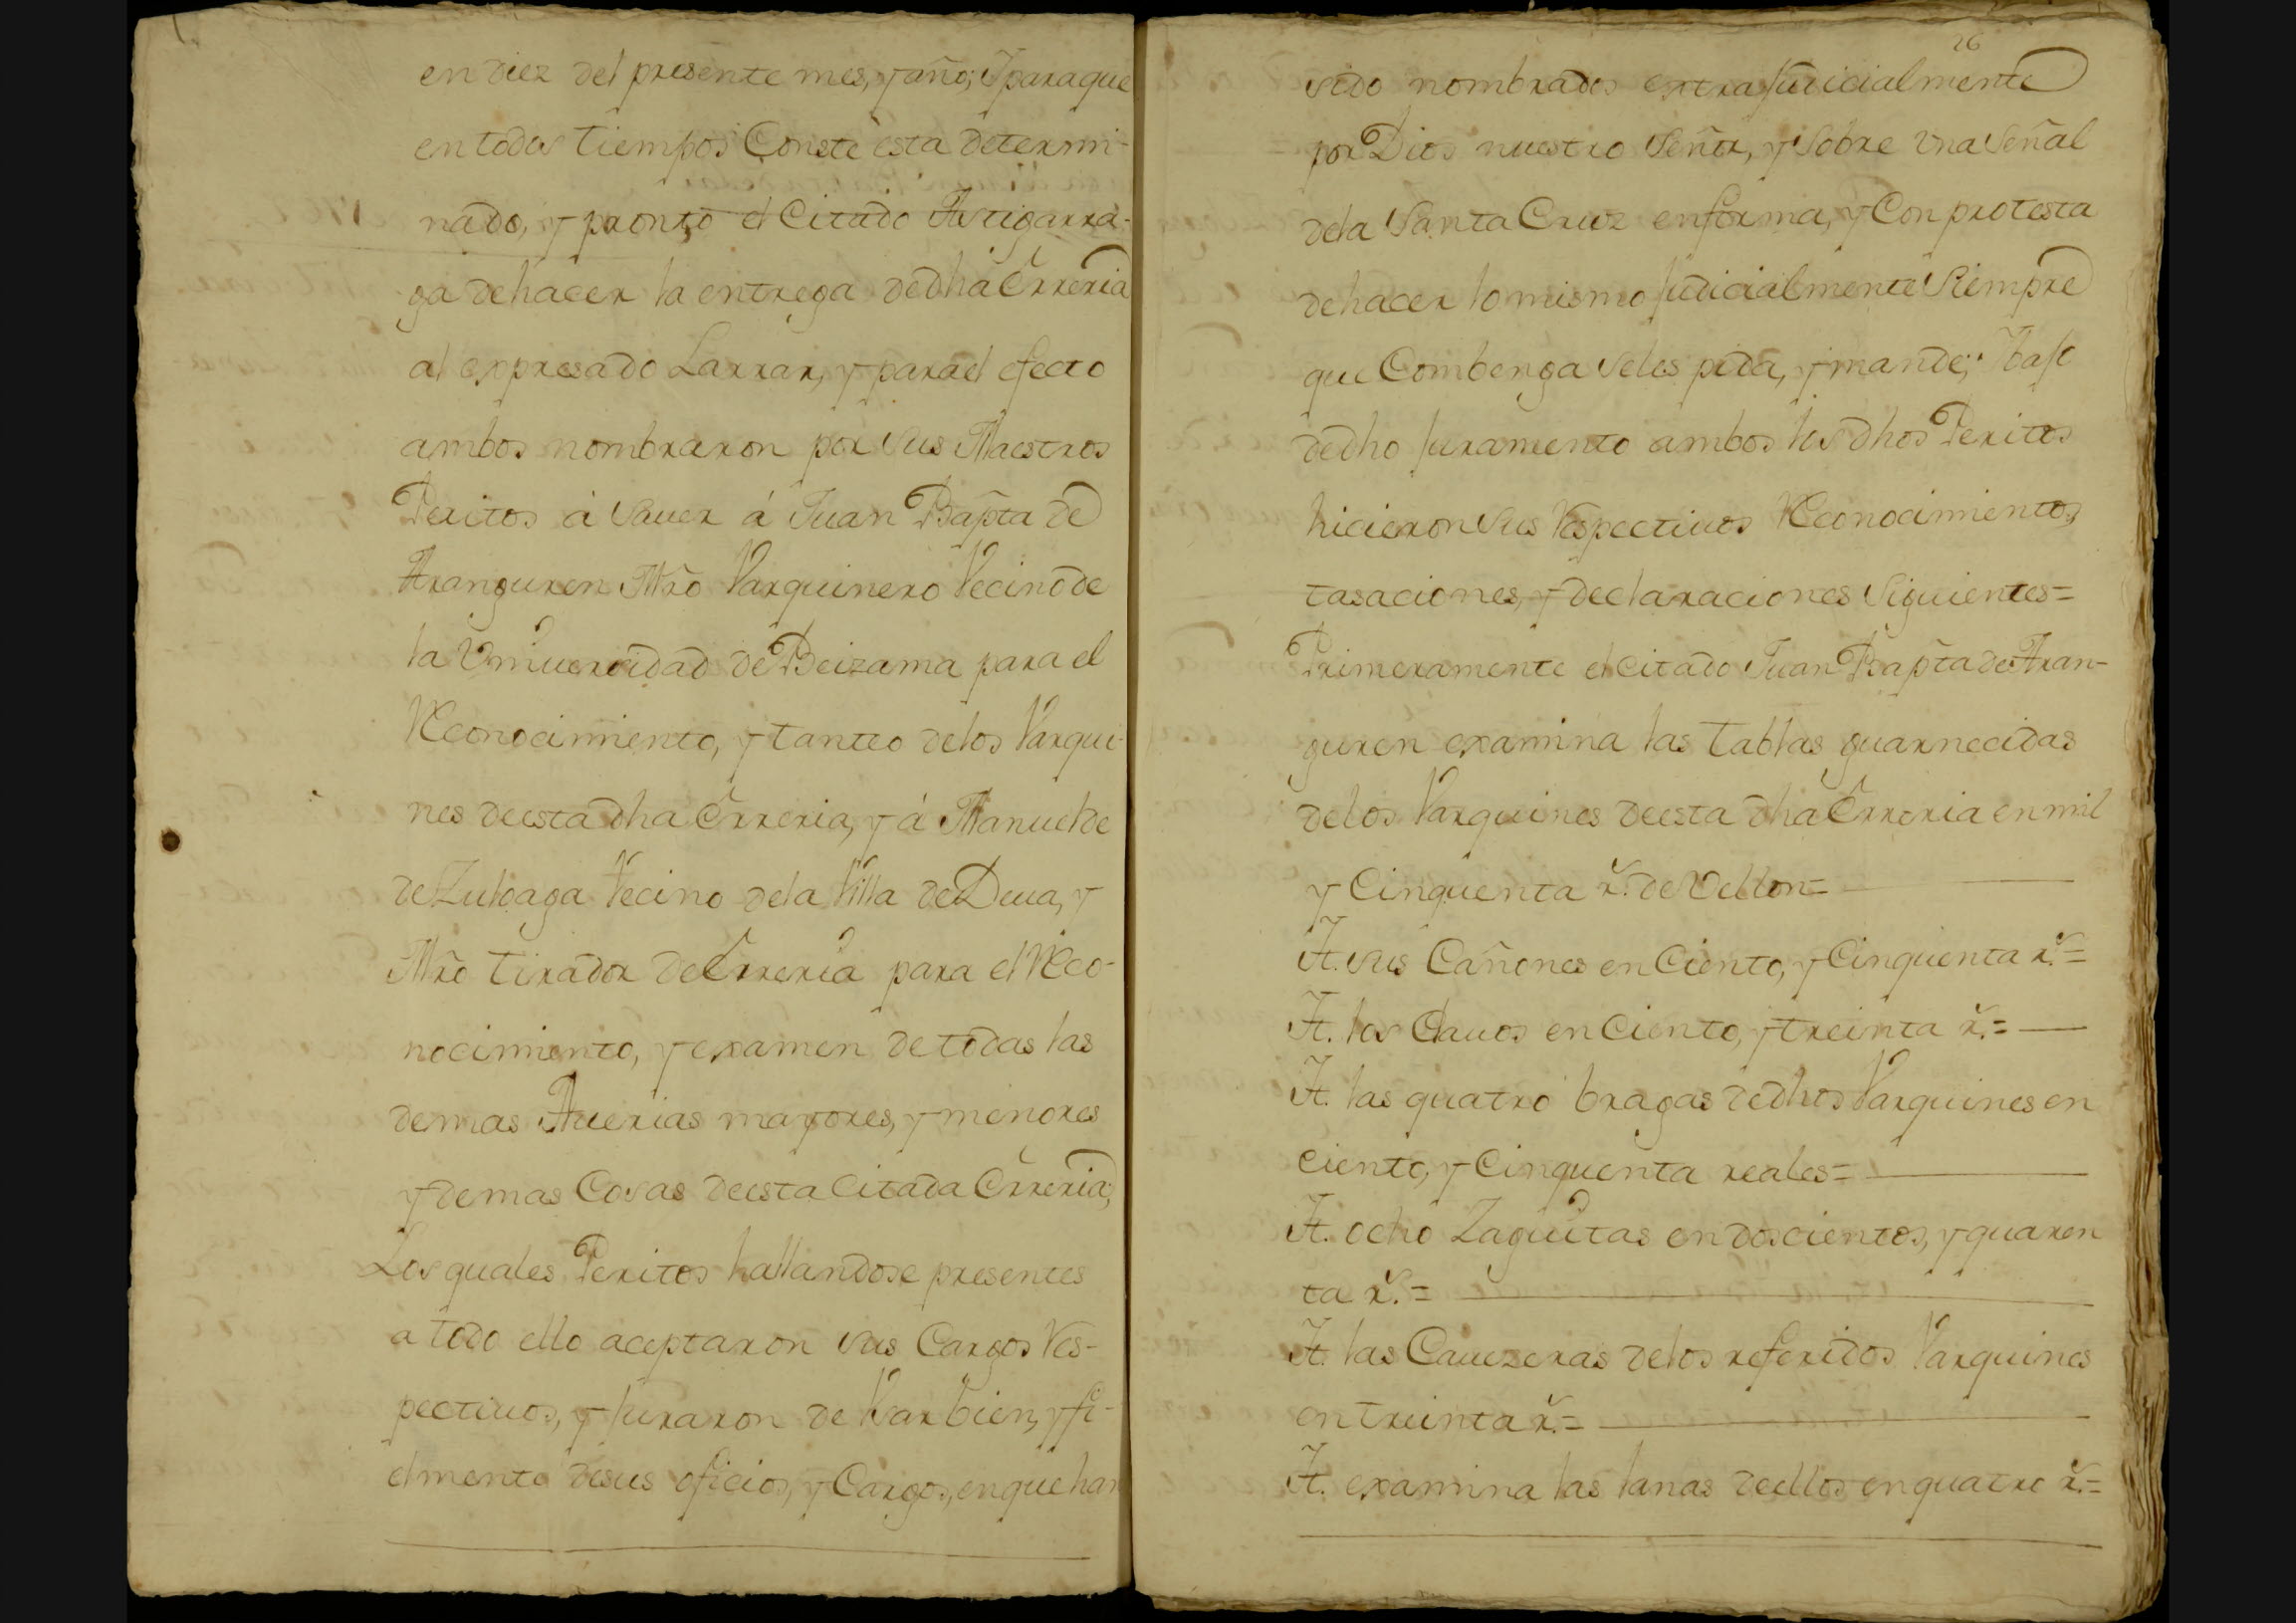 en diez del presente mes, y año; Y para que
en todos tiempos Conste esta determi-
nado, y pronto el Citado Astigarra-
ga de hacer la entrega de dha Erreria
al expresado Larrar, y para el efecto
ambos nombraron por sus Maestros
Peritos à saver á Juan Bapta de
Aranguren Mro Varquinero Vecino de
la Vniuersidad de Beizama para el
Reconocimiento, y tanteo de los Varqui-
nes de esta dha Erreria, y á Manuel de
de Zuloaga Vecino de la Villa de Deua, y
Mro tirador de Erreria para el Reco-
nocimiento, y examen de todas las
demas Auerias mayores, y menores
y demas Cosas de esta Citada Erreria;
Los quales Peritos hallandose presentes
a todo ello aceptaron sus Cargos Res-
pectiuos, y juraron de Vsar bien, y fi-
elmente de sus oficios, y Cargos, en que han
26
sido nombrados extrajudicialmente
por Dios nuestro Señor, y sobre vna señal
de la Santa Cruz en forma, y Con protesta
de hacer lo mismo judicialmente siempre
que Combenga seles pida, y mande; Y bajo
de dho juramento ambos los dhos Peritos
hicieron sus Respectiuos Reconocimientos,
tasaciones, y declaraciones siguientes=
Primeramente el citado Juan Bapta de Aran-
guren examina las tablas guarnecidas
de los Varquines de esta dha Erreria en mil
y Cinquenta rs. de Vellon=
It. sus Cañones en Ciento, y Cinquenta rs.=
It. los Clauos en Ciento, y treinta rs.=
It. las quatro bragas de dhos Varquines en
ciento, y Cinquenta reales=
It. ocho Zaguitas en doscientos, y quaren
ta rs.=
It. las Cauezeras de los referidos Varquines
en treinta rs.=
It. examina las lanas de ellos en quatro rs.=